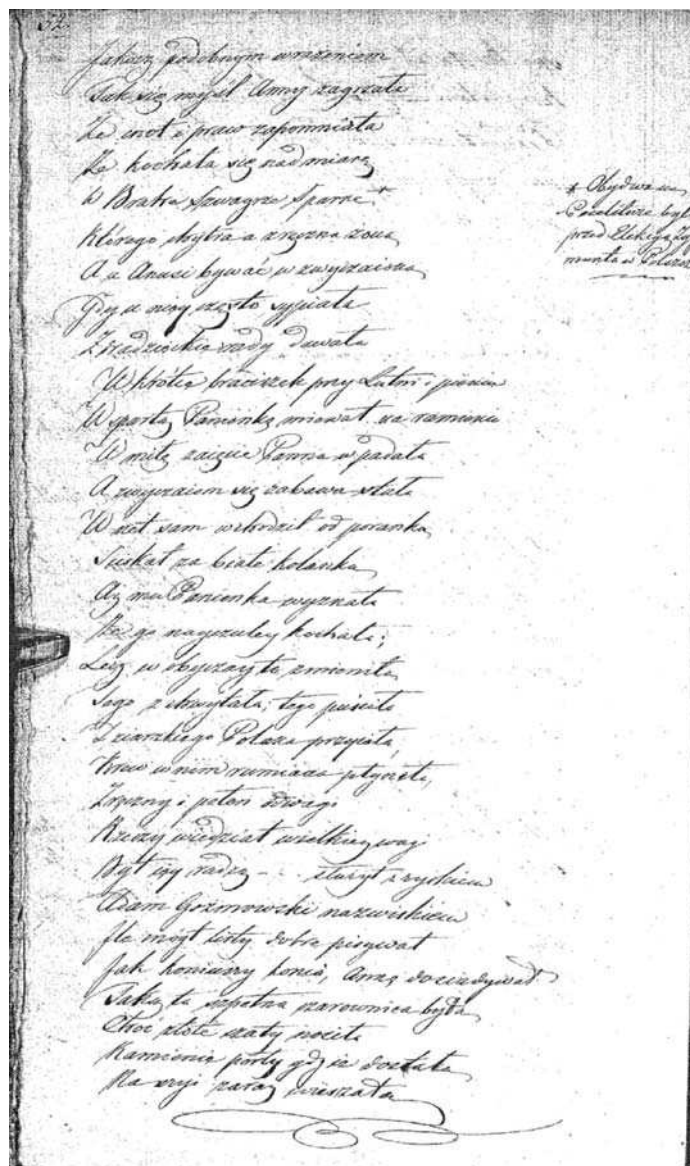 52.
Jakiesz podobnym wrażeniem
Tak się myśl Anny zagrzała
Że cnot i praw zapomniała
Że kochała się nad miarę
W Bracie Szwagrze Sparre *
Którego chytra a zręczna żona
A u Anusi bywać w zwyczaiona
Gdy u niey często sypiała
Zdradzieckie rady dawała
Wkrótce braciszek przy Lutni i pieniu
Wspartą Panienkę miewał na ramieniu
W miłe zaięcie Panna wpadała
A zwyczaiem się zabawa stała
W net sam wchodził od poranka
Sciskał za białe kolanka
Aż mu Panienka wyznała
Że go nayczuley kochała;
Lecz w obyczay to zmieniła
Jego zchwytała; tego puściła
Dziarskiego Polaka przyięła
Krew w nim rumiana płynęła,
Zręczny i pełen odwagi
Rzeczy wiedział wielkiey wagi
Był iey radzą - . służył z zyskiem
Adam Gozmowski nazwiskiem
Ile mógł listy dobrze pisywał
Jak koniuszy konia, Annę doieżdżywał
Taką ta szpetna czarownica była
Choć złote szaty nosiła
Kamienie perły gdzie dostała
Na szyi zaraz wieszała
* Obydwa
przed Elekcyą Zyg
munta w Polszcze